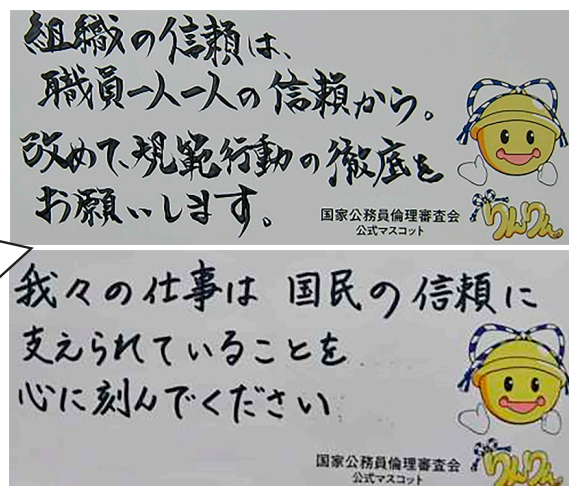 組織の信頼は、
職員一人一人の信頼から。
改めて、規範行動の徹底を
お願いします。
国家公務員倫理審査会
公式マスコット
りんりん
我々の仕事は 国民の信頼に
支えられていることを
心に刻んでください
国家公務員倫理審査会
公式マスコット
りんりん